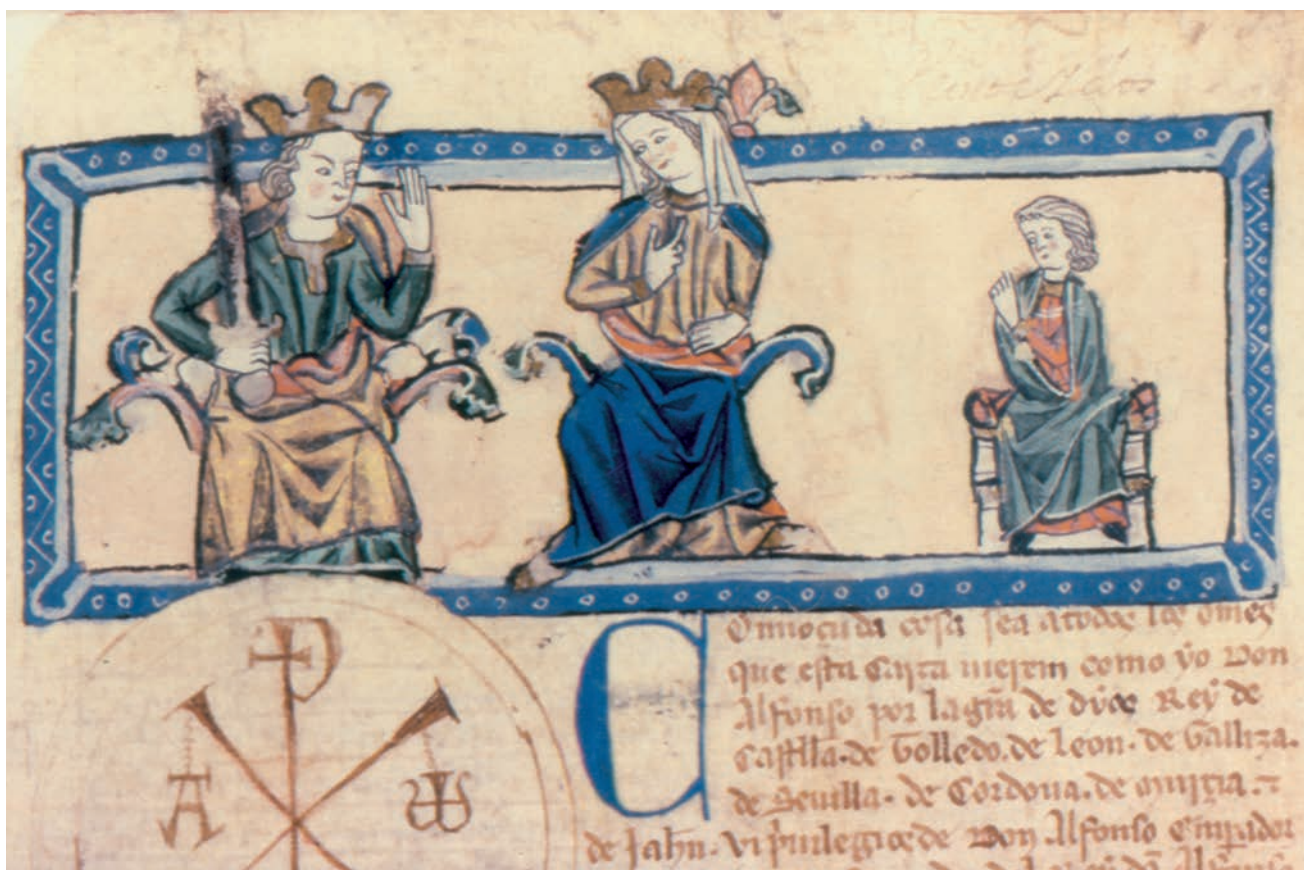 P
A ω
Connoçuda cosa sea a todos los omes
que esta carta uieren como yo Don
Alfonso por la gr̃a de dios Rey de
Castilla. de Tolledo. de Leon. de Galliza.
de Seuilla. de Cordoua. de Murcia. ⁊
de Jahn. vi priuilegio de Don Alfonso Emperador